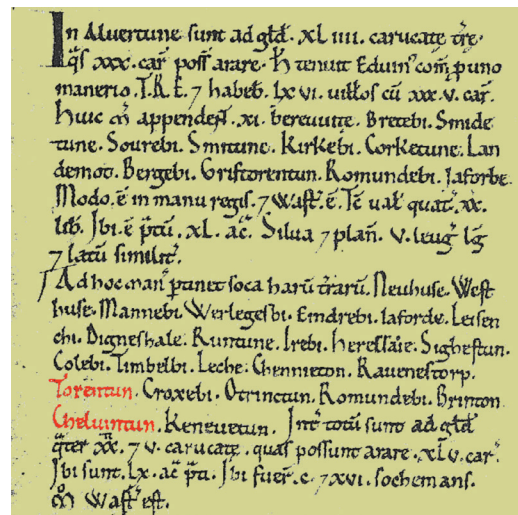 In Alvertune sunt ad gld̃. XL iiii. carucate t̃re.
q̃s xxx. car̃ poss̃ arare. H̃ tenuit Eduin᷒ com̃ p̱ uno
manerio. T.R.E. ⁊ habeb̃. lxvi. uill̃os cũ xxx.v. car̃.
Huic M̃ appendent̃. xi. bereuuite. Bretebi. Smide
tune. Sourebi. Smitune. Kirkebi. Corketune. Lan
demot. Bergebi. Griftorentun. Romundebi. Iaforbe.
Modo. ẽ in manu regis. ⁊ Wast̃. ẽ. Tc̃ ual̃ quat̃. xx.
lib̃. Ibi. ẽ p̃tũ. XL. ac̃. Silua ⁊ plan̄. v. leug̃ lg̃
⁊ latũ similit̃.
Ad hoc man̄ p̱tinet soca harũ t̃rarũ. Neuhuse. West
huse. Mannebi. Werlegesbi. Eindrebi. Iaforde. Leisen
chi. Digneshale. Runtune. Irebi. Herelsaie. Sighestun.
Colebi. Timbelbi. Leche. Chennieton. Rauenestorp.
Torentun. Croxebi. Otrinctun. Romundebi. Brinton
Cheluintun. Keneuetun. Int̃ totũ sunt ad gld̃
q̃ter xx. ⁊ v. carucate. quas possunt arare. xlv. car̃.
Ibi sunt. lx. ac̃ p̃ti. Ibi fuer̃. c. ⁊ xvi. sochemans.
M̊ Wast̃ est.